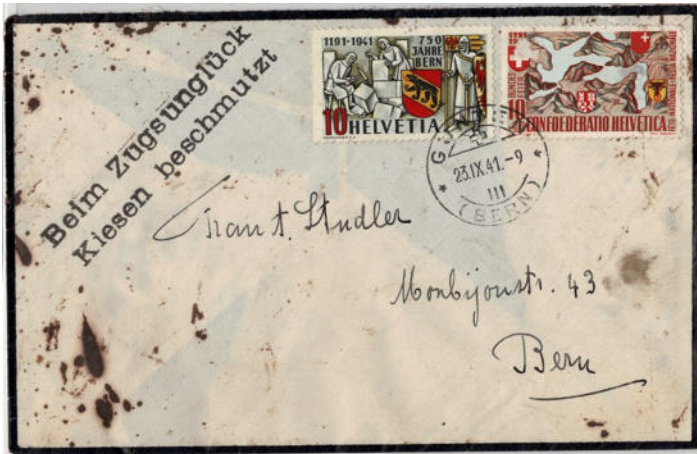 Beim Zugsunglück
Kiesen beschmutzt
1191-1941
750
JAHRE
BERN
10 HELVETIA
1291
BUNDES
FEIER
10 CONFOEDERATIO HELVETICA
23.IX.41.-9
III
(BERN)
Studler
Monbijoustr. 43
Bern